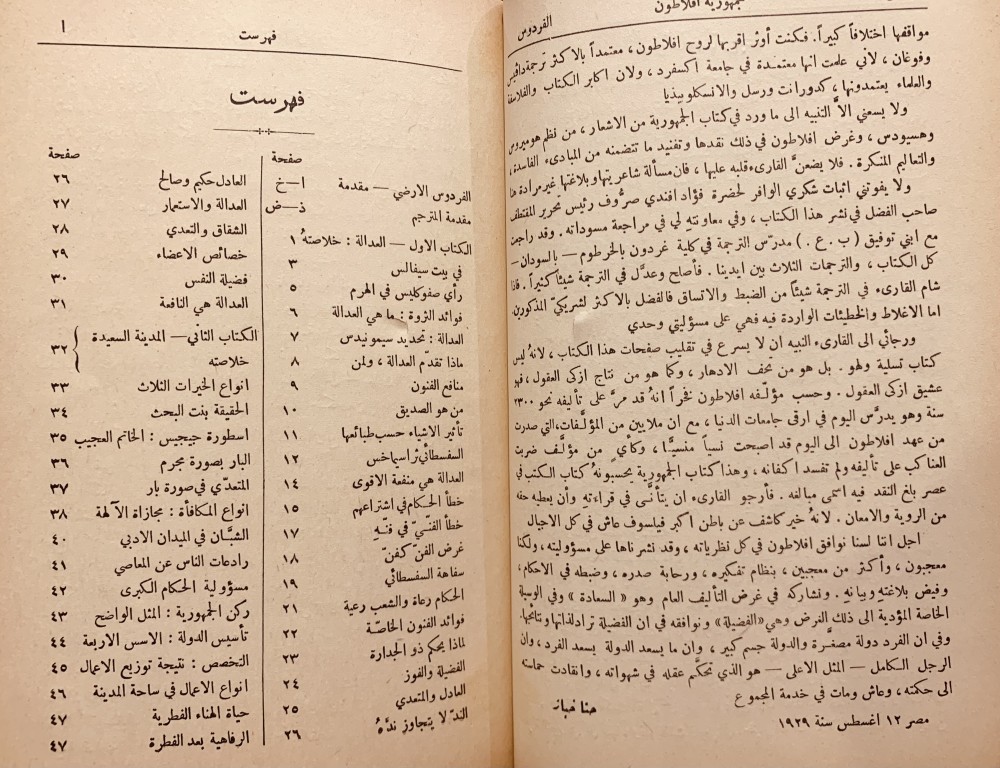 جمهورية افلاطون
الفردوس
مواقفها اختلافاً كبيراً. فكنت أوثر اقربها لروح افلاطون ، معتمداً بالاكثر ترجمة دافيس
وفوغان ، لأني علمت انها معتمدة في جامعة اكسفرد ، ولان اكابر الكتاب والفلاسفة
والعلماء يعتمدونها ، كدورانت ورسل والانسكلوبيذيا
ولا يسعني الاَّ التنبيه الى ما ورد في كتاب الجمهورية من الاشعار ، من نظم هوميروس
وهسيودس ، وغرض افلاطون في ذلك نقدها وتفنيد ما تتضمنه من المبادىء الفاسدة ،
والتعاليم المنكرة . فلا يضعنَّ القارىء قلبه عليها ، فان مسألة شاعريتها وبلاغتها غير مرادة هنا
ولا يفوتني اثبات شكري الوافر لحضرة فؤاد افندي صرُّوف رئيس تحرير المقتطف
صاحب الفضل في نشر هذا الكتاب ، وفي معاونته لي في مراجعة مسوداته . وقد راجعت
مع ابني توفيق ( ب . ع . ) مدرّس الترجمة في كلية غردون بالخرطوم — بالسودان —
كل الكتاب ، والترجمات الثلاث بين ايدينا . فأصلح وعدَّل في الترجمة شيئاً كثيراً . فاذا
شام القارىء في الترجمة شيئاً من الضبط والاتساق فالفضل بالاكثر لشريكيَّ المذكورين.
اما الاغلاط والخطيئات الواردة فيه فهي على مسؤليتي وحدي
ورجائي الى القارىء النبيه ان لا يسرع في تقليب صفحات هذا الكتاب ، لانهُ ليس
كتاب تسلية ولهو . بل هو من تحف الادهار ، وكما هو من نتاج ازكى العقول ، فهو
عشيق ازكى العقول . وحسب مؤلّفه افلاطون فخراً انهُ قد مرَّ على تأليفه نحو ٢٣٠٠
سنة وهو يدرَّس اليوم في ارقى جامعات الدنيا ، مع ان ملايين من المؤلَّفات، التي صدرت
من عهد افلاطون الى اليوم قد اصبحت نسياً منسيًّا ، وكأيٍ من مؤلَّف ضربت
العناكب على تأليفه ولم تفسد اكفانه ، وهذا كتاب الجمهورية يحسبونهُ كتاب الكتب في
عصر بلغ النقد فيه اسمى مبالغه . فأرجو القارىء ان يتأنَّى في قراءته وأن يعطيه حقه
من الروية والامعان . لانهُ خير كاشف عن باطن اكبر فيلسوف عاش في كل الاجيال
اجل اننا لسنا نوافق افلاطون في كل نظرياته ، وقد نشرناها على مسؤوليته، ولكننا
معجبون ، وأكثر من معجبين ، بنظام تفكيره ، ورحابة صدره ، وضبطه في الاحكام،
وفيض بلاغته وبيانه . ونشاركه في غرض التأليف العام وهو « السعادة » وفي الوسيلة
الخاصة المؤدية الى ذلك الغرض وهي «الفضيلة» ونوافقه في ان الفضيلة تراد لذاتها ونتائجها.
وفي ان الفرد دولة مصغَّرة والدولة جسم كبير ، وان ما يسعد الدولة يسعد الفرد ، وان
الرجل الكامل — المثل الاعلى — هو الذي تحكَّم عقله في شهواته ، وانقادت حماسته
الى حكمته ، وعاش ومات في خدمة المجموع
حنا خباز
مصر ١٢ اغسطس سنة ١٩٢٩
فهرست
أ
فهرست
صفحة
الفردوس الارضي — مقدمة ا—خ
مقدمة المترجم ذ—ض
الكتاب الاول — العدالة : خلاصتهُ ١
في بيت سيفالس ٣
رأي صفوكليس في الهرم ٥
فوائد الثروة : ما هي العدالة ٦
العدالة : تحديد سيمونيدس ٧
ماذا تقدّم العدالة ، ولمن ٨
منافع الفنون ٩
من هو الصديق ١٠
تأثير الاشياء حسب طبائعها ١١
السفسطائي ثراسيماخس ١٢
العدالة هي منفعة الاقوى ١٤
خطأ الحكام في اشتراعهم ١٥
خطأ الفنيّ في فنّهِ ١٧
غرض الفنّ كفنّ ١٨
سفاهة السفسطائي ١٩
الحكام رعاة والشعب رعية ٢١
فوائد الفنون الخاصّة ٢٢
لماذا يحكم ذو الجدارة ٢٣
الفضيلة والفوز ٢٤
العادل والمتعدي ٢٥
الندّ لا يتجاوز ندَّهُ ٢٦
صفحة
العادل حكيم وصالح ٢٦
العدالة والاستعمار ٢٧
الشقاق والتعدي ٢٨
خصائص الاعضاء ٢٩
فضيلة النفس ٣٠
العدالة هي النافعة ٣١
الكتاب الثاني — المدينة السعيدة
خلاصته ٣٢
انواع الخيرات الثلاث ٣٣
الحقيقة بنت البحث ٣٤
اسطورة جيجيس : الخاتم العجيب ٣٥
البار بصورة مجرم ٣٦
المتعدّي في صورة بار ٣٧
انواع المكافأة : مجازاة الآلهة ٣٨
الشبَّان في الميدان الادبي ٤٠
رادعات الناس عن المعاصي ٤١
مسؤولية الحكام الكبرى ٤٢
ركن الجمهورية : المثل الواضح ٤٣
تأسيس الدولة : الاسس الاربعة ٤٤
التخصص : نتيجة توزيع الاعمال ٤٥
انواع الاعمال في ساحة المدينة ٤٦
حياة الهناء الفطرية ٤٧
الرفاهية بعد الفطرة ٤٧